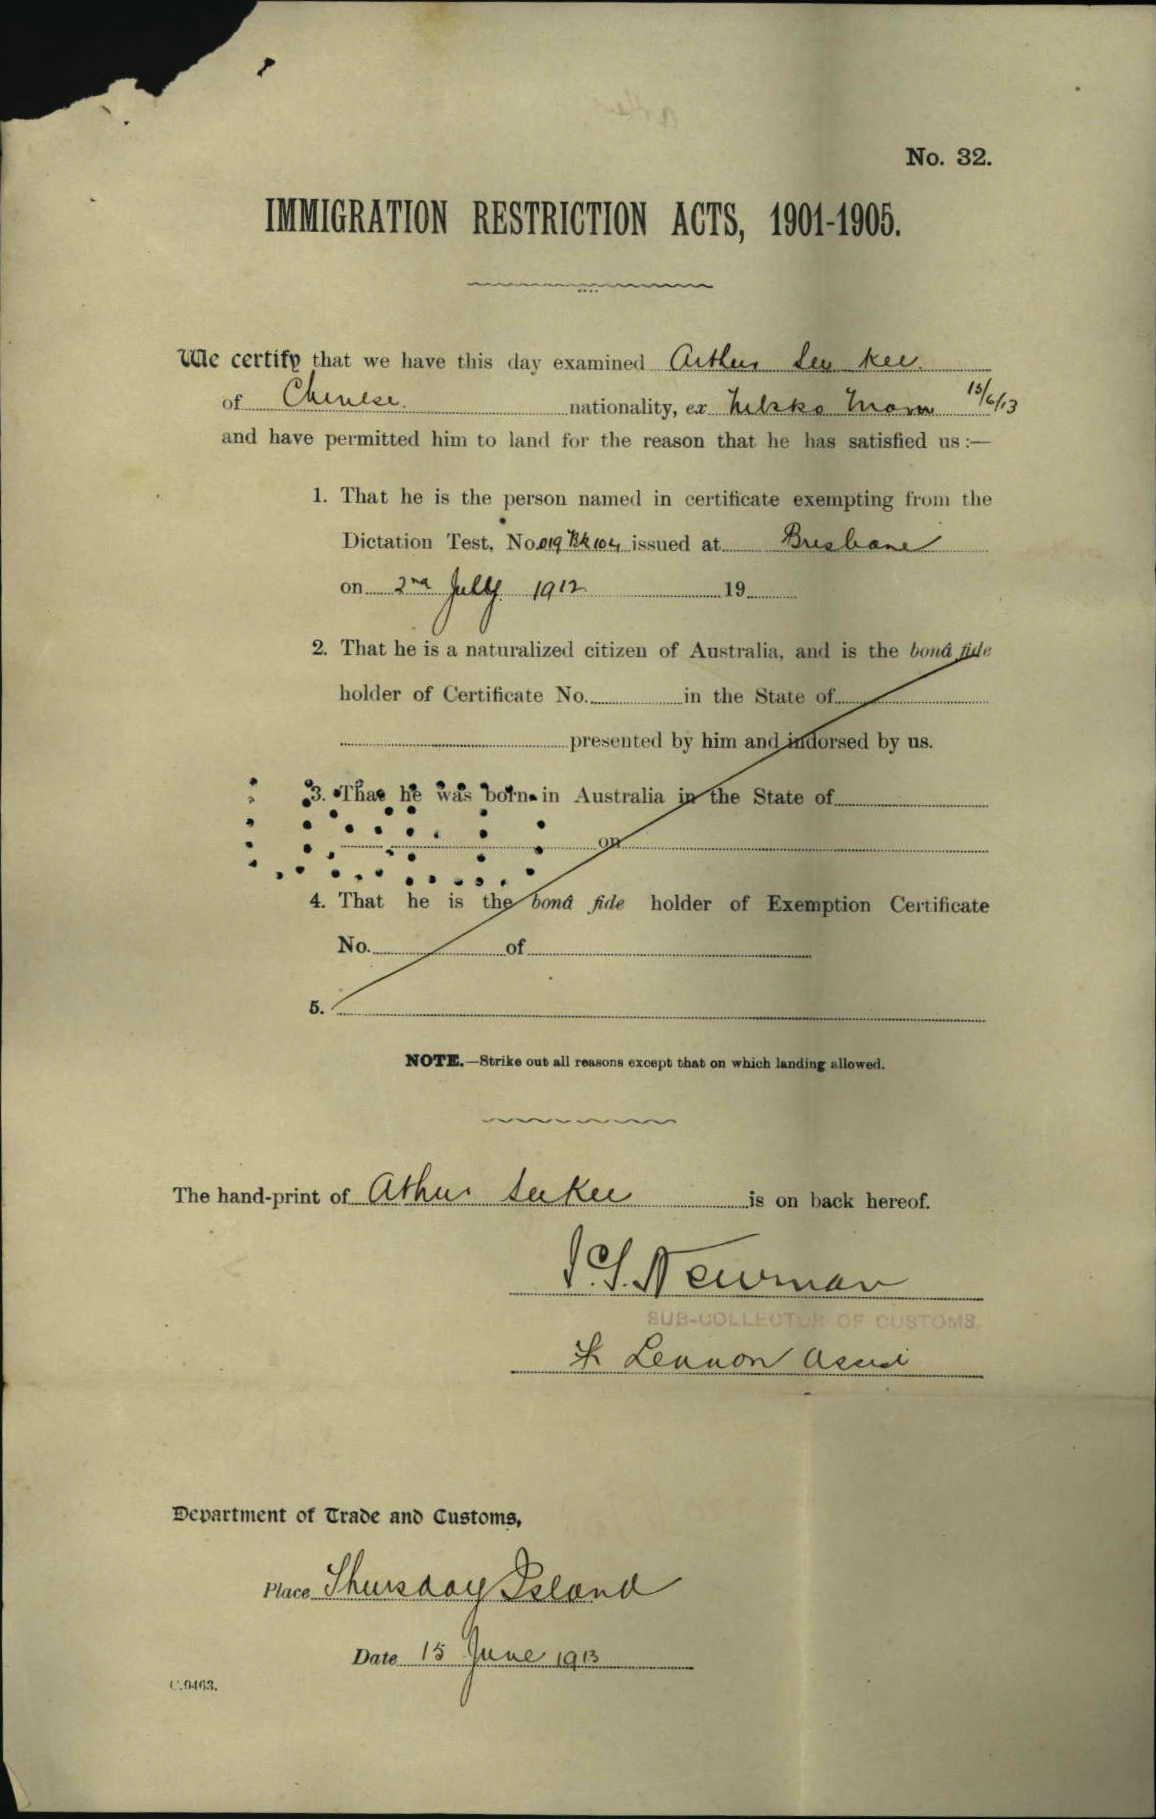 No. 32.
IMMIGRATION RESTRICTION ACTS, 1901-1905.
We certify that we have this day examined Arthur See Kee.
of Chinese. nationality, ex Nikko Maru 15/6/13
and have permitted him to land for the reason that he has satisfied us :—
1. That he is the person named in certificate exempting from the
Dictation Test, No. 019 Bk 104 issued at Brisbane
on 2nd July 1912 19
2. That he is a naturalized citizen of Australia, and is the bonâ fide
holder of Certificate No. in the State of
presented by him and indorsed by us.
3. That he was born in Australia in the State of
on
4. That he is the bonâ fide holder of Exemption Certificate
No. of
5.
NOTE.—Strike out all reasons except that on which landing allowed.
The hand-print of Athur See Kee is on back hereof.
Newman
SUB-COLLECTOR OF CUSTOMS.
Lennon
Department of Trade and Customs,
Place Thursday Island
Date 15 June 1913
C.9463.